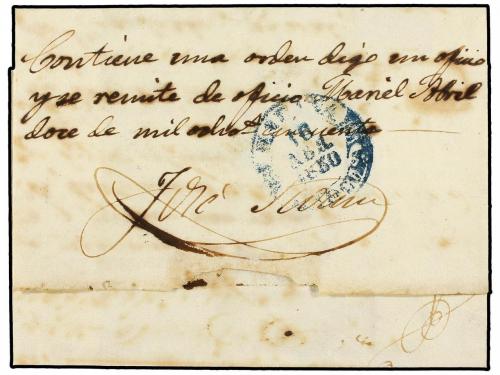 Contiene una orden digo un oficio
y se remite de oficio Mariel Abril
doce de mil ochos. cincuenta
16
ABR
1850
José